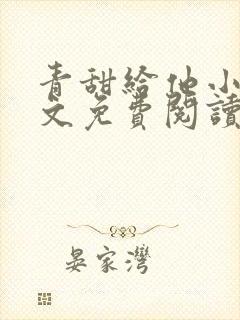 青甜給他小
文免費閱讀
晏家灣